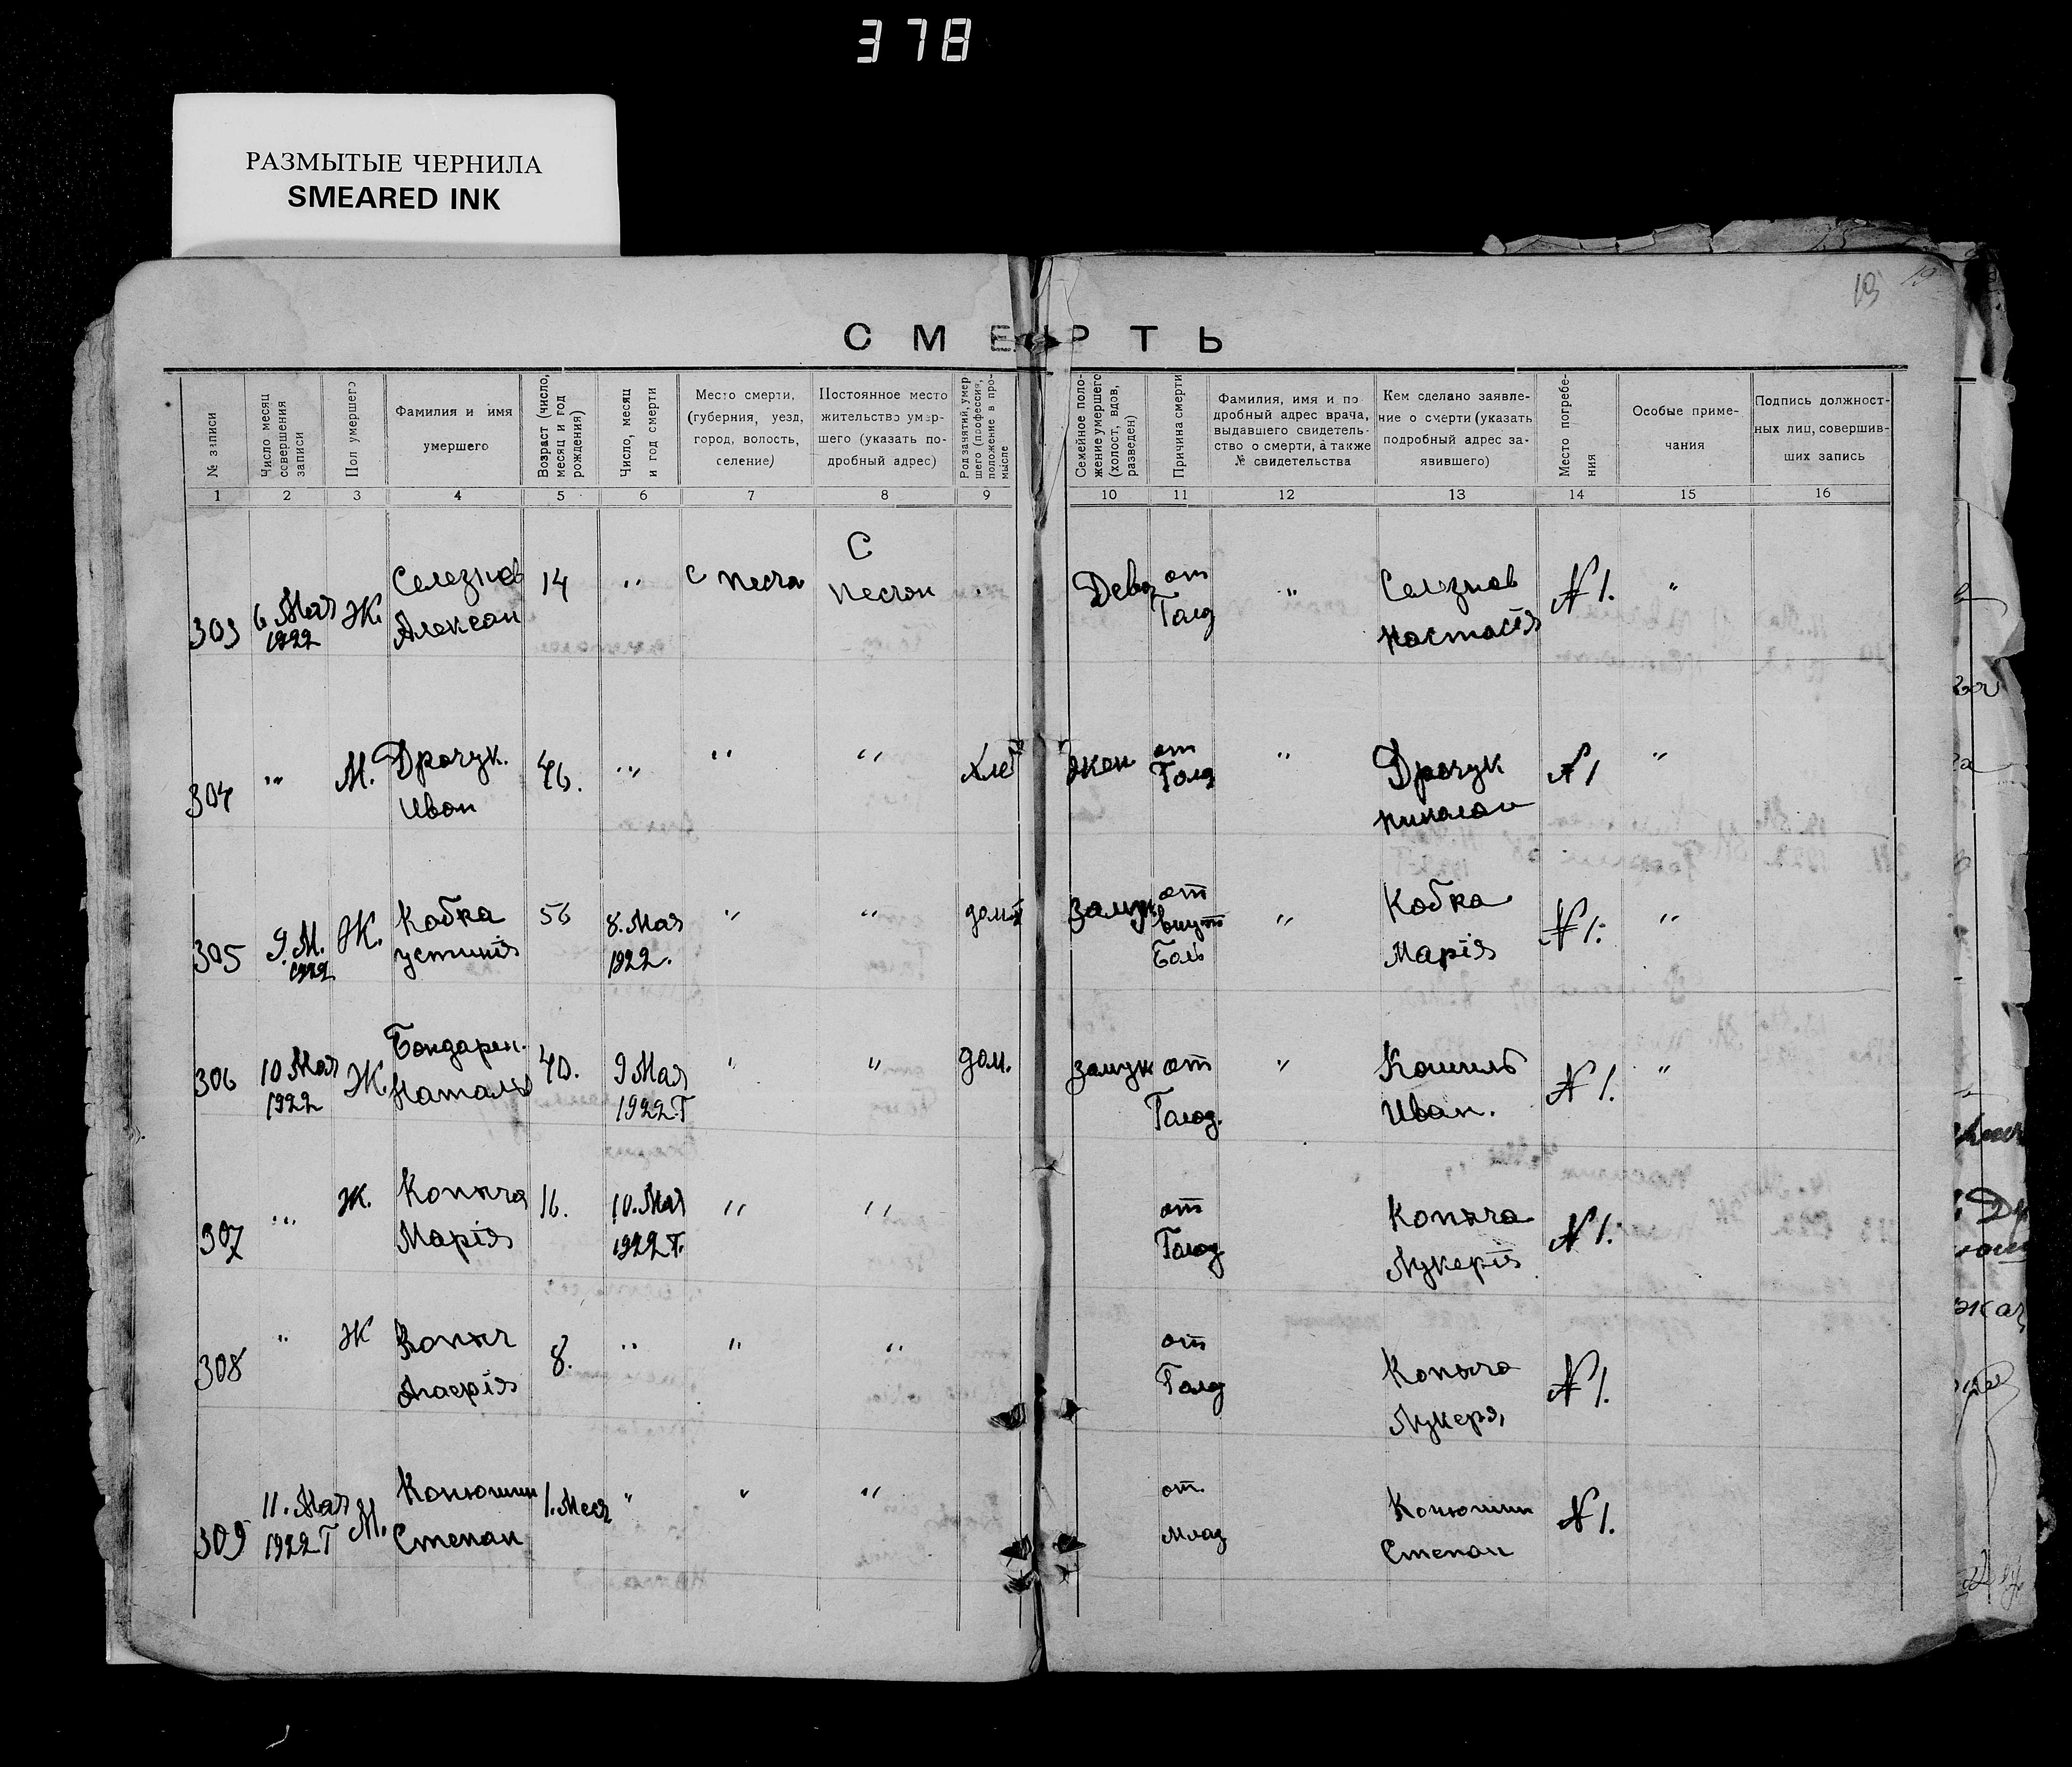 378
РАЗМЫТЫЕ ЧЕРНИЛА
SMEARED INK
19
СМЕРТЬ
№ записи
Число месяц
совершения
записи
Пол умершего
Фамилия и имя
умершего
Возраст (число,
месяц и год
рождения)
Число, месяц
и год смерти
Место смерти,
(губерния, уезд,
город, волость,
селение)
Постоянное место
жительство умер-
шего (указать по-
дробный адрес)
Род занятий, умер-
шего (профессия,
положение в про-
мысле
Семейное поло-
жение умершего
(холост, вдов,
разведен)
Причина смерти
Фамилия, имя и по
дробный адрес врача,
выдавшего свидетель-
ство о смерти, а также
№ свидетельства
Кем сделано заявле-
ние о смерти (указать
подробный адрес за-
явившего)
Место погребе-
ния
Особые приме-
чания
Подпись должност-
ных лиц, совершив-
ших запись
1 2 3 4 5 6 7 8 9 10 11 12 13 14 15 16
303 6 Мая 1922 Ж. Селезнев Алексан 14 " с песча С песчан Дева от Голд " Селзнов Настасія № 1. "
304 " М. Драчук. Иван 46. " " " Хлеб Жен от Голд " Драчук Николай № 1 "
305 9. М. 1922 Ж. Кобка устинія 56 8. Мая 1922. " " дом замуж от внут Боль " Кобка Марія № 1. "
306 10 Мая 1922 Ж. Бондарен. Наталья 40. 9 Мая 1922 Г " " дом. замуж от Голод. " Кошиль Иван. № 1. "
307 " Ж. Копяча Марія 16. 10. Мая 1922 Г. " " от Голод Копяча Лукерія № 1.
308 " Ж Копяч 8. " " " от Голд Копяча Лукеря № 1.
309 11. Мая 1922 Г М. Конюшин Степан 1. Меся " " " от. Млад Конюшин Степан № 1.